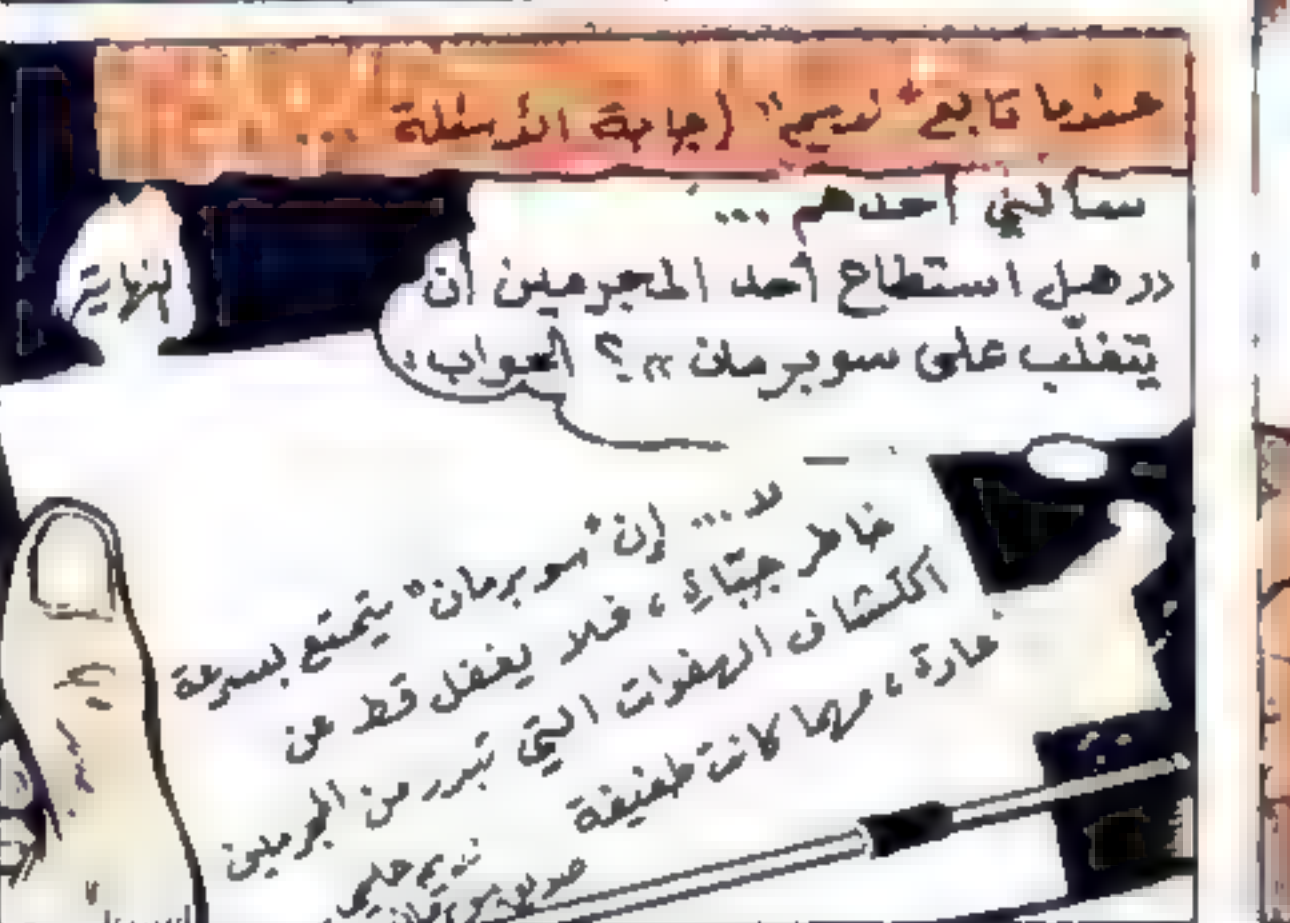 عندما تابع "نديم" إجابة الأسئلة ...
سألني أحدهم ...
((هل استطاع أحد المجرمين أن
يتغلّب على سوبرمان))؟ الجواب:
لا ... إن "سوبرمان" يتمتع بسرعة
خاطر جبّارة، فلا يغفل قط عن
اكتشاف الهفوات التي تبدر من المجرمين
عادة، مهما كانت طفيفة
نديم حلمي
صديق سوبرمان
النهاية